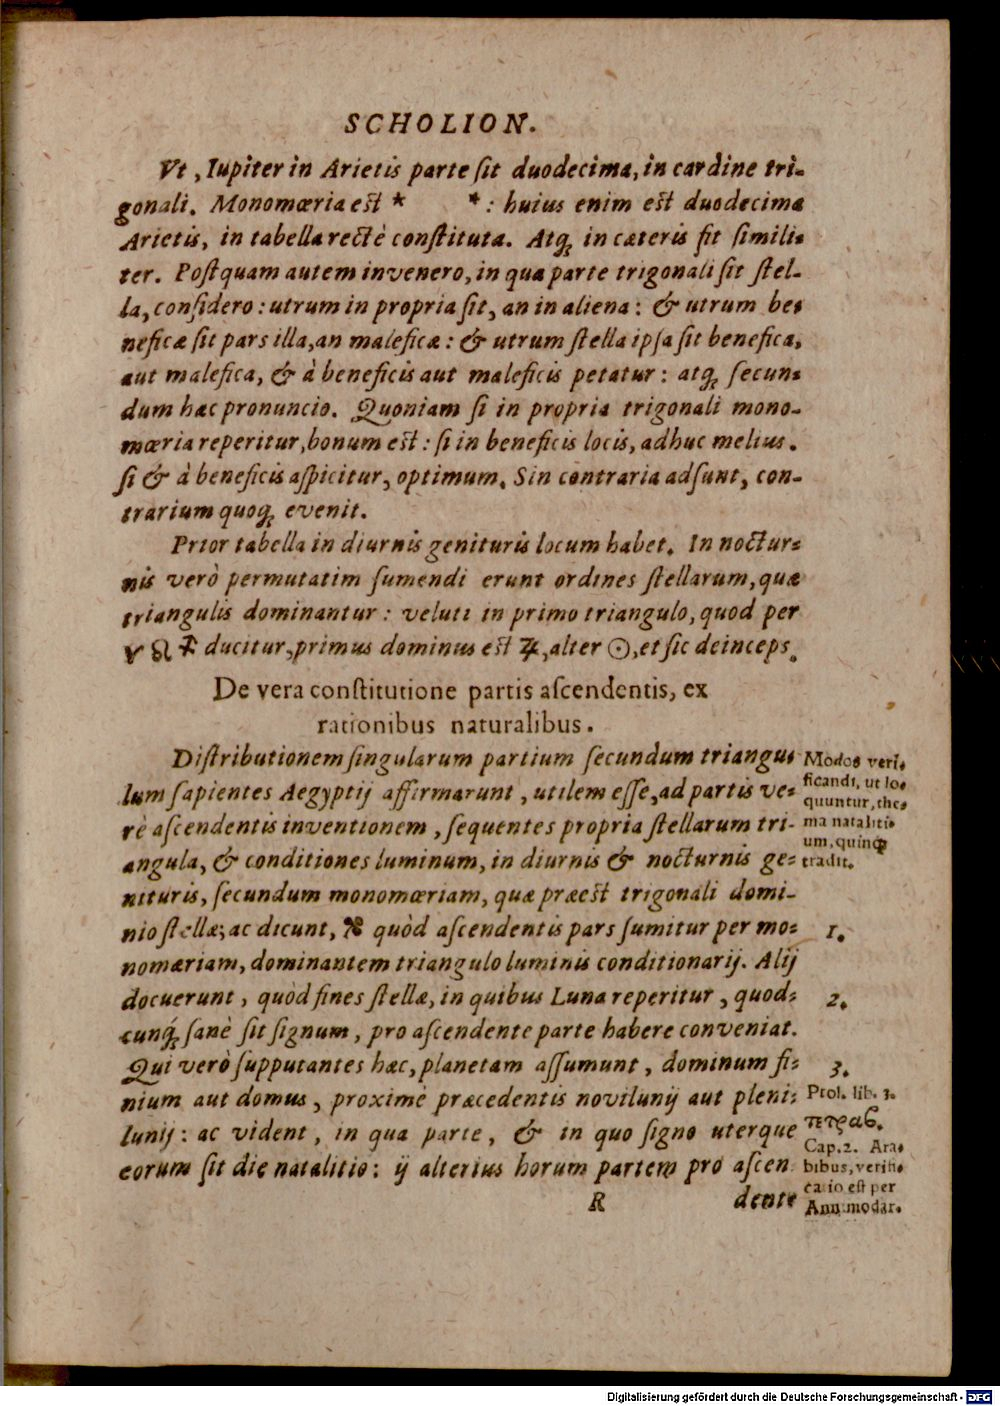 SCHOLION.
Vt, Iupiter in Arietis parte ſit duodecima, in cardine tri-
gonali. Monomœria est * *: huius enim est duodecima
Arietis, in tabella rectè conſtituta. Atq; in cæteris fit ſimili-
ter. Poſtquam autem invenero, in qua parte trigonali ſit ſtel-
la, conſidero: utrum in propria ſit, an in aliena: & utrum be-
neficæ ſit pars illa, an maleficæ: & utrum ſtella ipſa ſit benefica,
aut malefica, & à beneficis aut maleficis petatur: atq; ſecun-
dum hæc pronuncio. Quoniam ſi in propria trigonali mono-
mœria reperitur, bonum est: ſi in beneficis locis, adhuc melius.
ſi & à beneficis aſpicitur, optimum. Sin contraria adſunt, con-
trarium quoq; evenit.
Prior tabella in diurnis genituris locum habet. In noctur-
nis verò permutatim ſumendi erunt ordines ſtellarum, quæ
triangulis dominantur: veluti in primo triangulo, quod per
♈ ♌ ♐ ducitur, primus dominus est ♃, alter ☉, et ſic deinceps.
De vera conſtitutione partis aſcendentis, ex
rationibus naturalibus.
Diſtributionem ſingularum partium ſecundum triangu-
lum ſapientes Aegyptij affirmarunt, utilem eſſe, ad partis ve-
rè aſcendentis inventionem, ſequentes propria ſtellarum tri-
angula, & conditiones luminum, in diurnis & nocturnis ge-
nituris, ſecundum monomœriam, quæ præest trigonali domi-
nio ſtellæ; ac dicunt, quòd aſcendentis pars ſumitur per mo-
nomœriam, dominantem triangulo luminis conditionarij. Alij
docuerunt, quòd fines ſtellæ, in quibus Luna reperitur, quod-
cunq; ſanè ſit ſignum, pro aſcendente parte habere conveniat.
Qui verò ſupputantes hæc, planetam aſſumunt, dominum fi-
nium aut domus, proximè præcedentis novilunij aut pleni-
lunij: ac vident, in qua parte, & in quo ſigno uterque
eorum ſit die natalitio: ij alterius horum partem pro aſcen
R dente
Modos veri-
ficandi, ut lo-
quuntur, the-
ma nataliti-
um, quinq;
tradit.
1.
2.
3.
Ptol. lib. 3.
Cap. 2. Ara-
bibus, verifi-
catio est per
Annimodar.
Digitalisierung gefördert durch die Deutsche Forschungsgemeinschaft - DFG